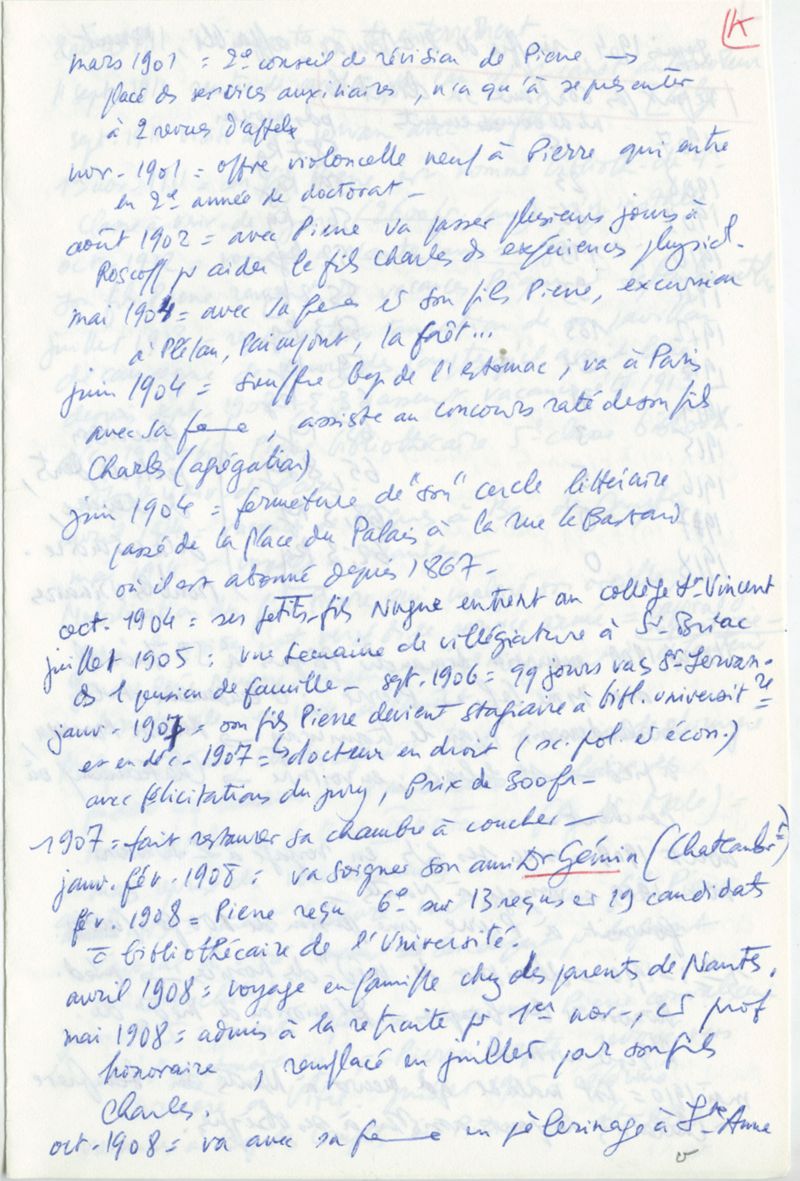 K
mars 1901 = 2e conseil de révision de Pierre →
placé ds services auxiliaires, n'a qu'à se présenter
à 2 revues d'appels
nov. 1901 = offre violoncelle neuf à Pierre qui entre
en 2e année de doctorat –
août 1902 = avec Pierre va passer plusieurs jours à
Roscoff pr aider le fils Charles ds expériences physiol.
mai 1904 = avec sa femme et son fils Pierre, excursion
à Plélan, Paimpont, la forêt...
juin 1904 = souffre bcp de l'estomac, va à Paris
avec sa femme, assiste au concours raté de son fils
Charles (agrégation)
juin 1904 = fermeture de "son" cercle littéraire
passé de la place du Palais à la rue le Bastard
où il est abonné depuis 1867 –
oct. 1904 = ses petits-fils entrent au collège St-Vincent
juillet 1905 = une semaine de villégiature à St-Briac
ds 1 pension de famille – sept. 1906 = 99 jours vers St-Servan.
janv. 1907 = son fils Pierre devient stagiaire à bibl. universitre
et en déc. 1907 = docteur en droit (sc. pol. et écon.)
avec félicitations du jury, prix de 300 fr –
1907 = fait restaurer sa chambre à coucher –
janv. fév. 1908 = va soigner son ami Dr Gémin
fév. 1908 = Pierre reçu 6e sur 13 reçus et 19 candidats
= bibliothécaire de l'Université.
avril 1908 = voyage en famille chez des parents de Nantes.
mai 1908 = admis à la retraite pr 1er nov –, et prof
honoraire, remplacé en juillet par son fils
Charles.
oct. 1908 = va avec sa femme en pèlerinage à Ste-Anne